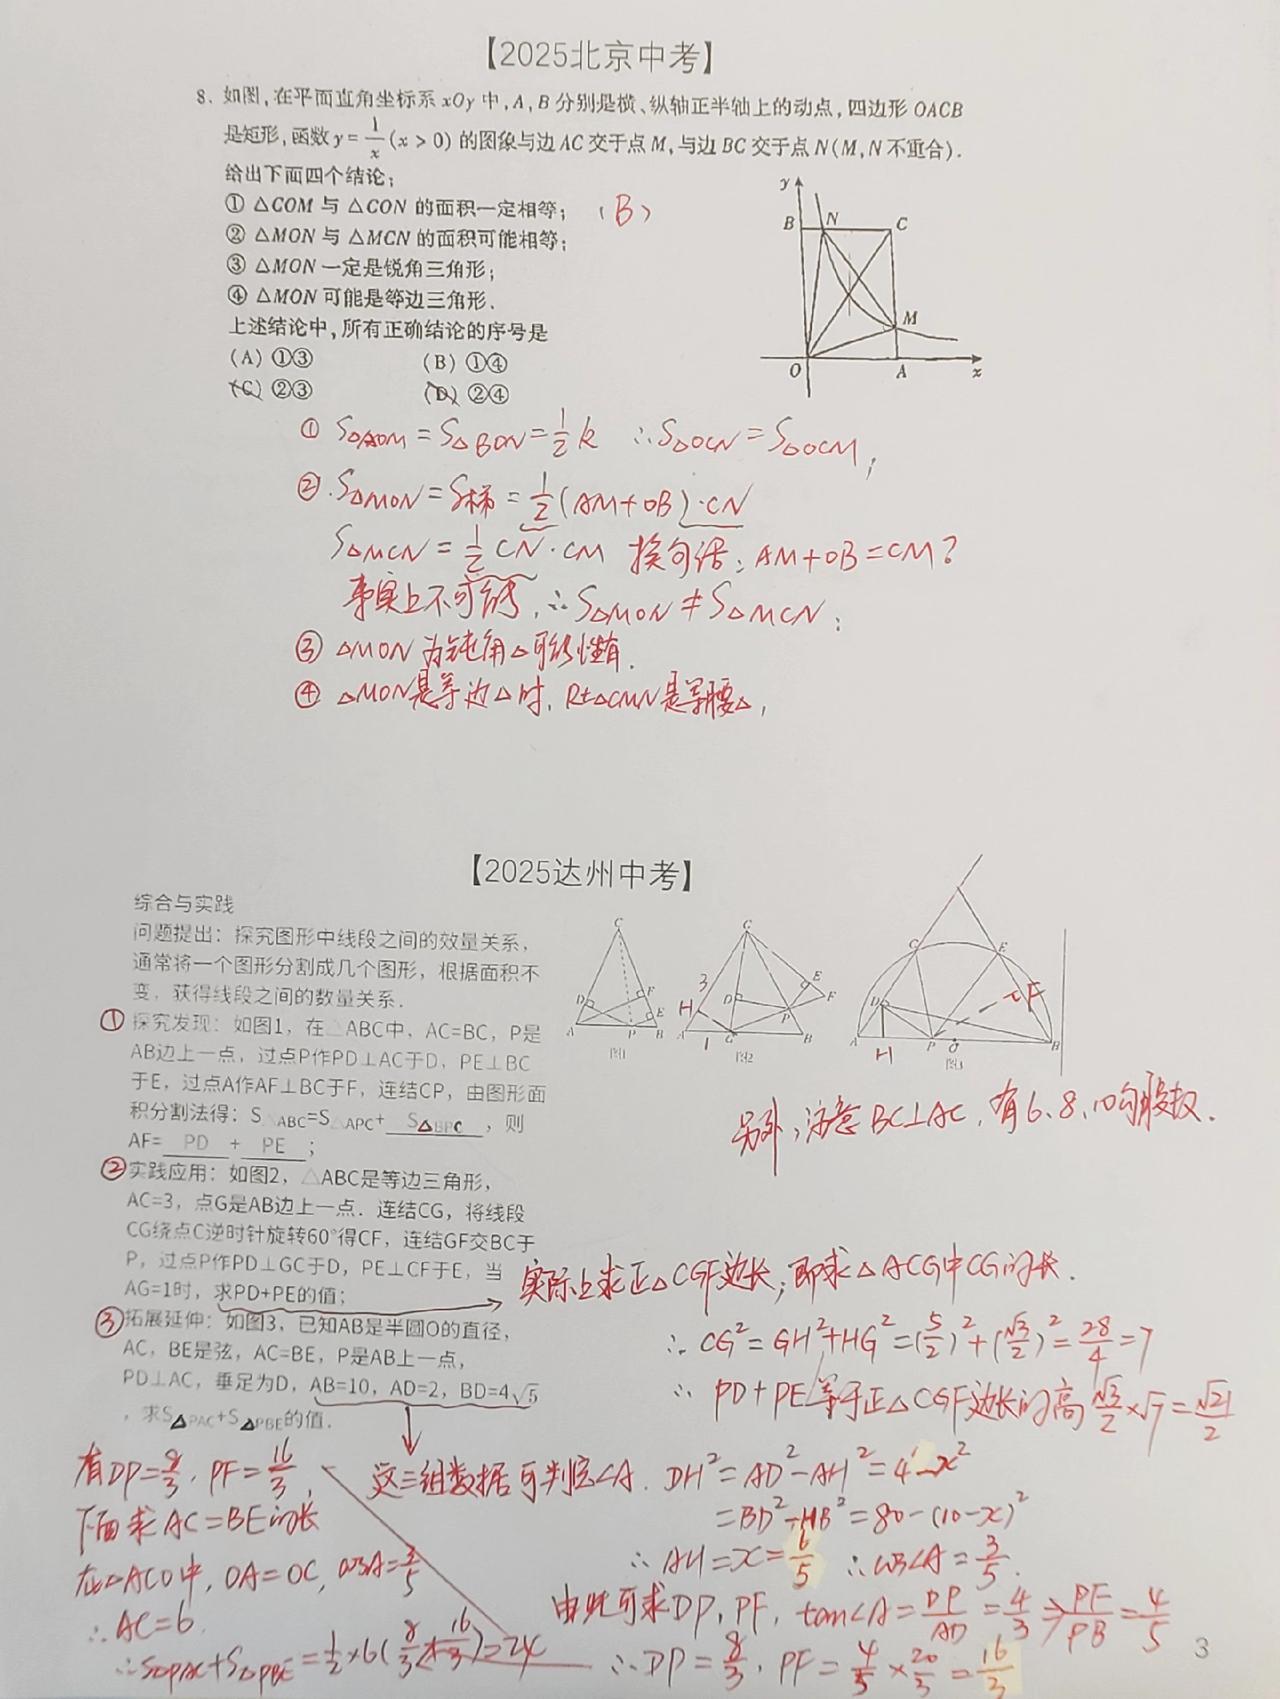 【2025北京中考】
8. 如图,在平面直角坐标系 xOy 中,A,B 分别是横、纵轴正半轴上的动点,四边形 OACB
是矩形,函数 y=1/x (x>0) 的图象与边 AC 交于点 M,与边 BC 交于点 N(M,N 不重合).
给出下面四个结论;
① △COM 与 △CON 的面积一定相等; (B)
② △MON 与 △MCN 的面积可能相等;
③ △MON 一定是锐角三角形;
④ △MON 可能是等边三角形.
上述结论中,所有正确结论的序号是
(A) ①③ (B) ①④
(C) ②③ (D) ②④
y
B N C
M
O A x
① S△AOM = S△BON = 1/2 k ∴S△OCN = S△OCM;
② S△MON = S梯 = 1/2 (AM+OB)·CN
S△MCN = 1/2 CN·CM 换句话: AM+OB=CM?
事实上不可能, ∴S△MON ≠ S△MCN;
③ △MON 为钝角△可能性有.
④ △MON是等边△时, Rt△CMN是等腰△,
【2025达州中考】
综合与实践
问题提出:探究图形中线段之间的效量关系,
通常将一个图形分割成几个图形,根据面积不
变,获得线段之间的数量关系.
① 探究发现:如图1,在△ABC中,AC=BC,P是
AB边上一点,过点P作PD⊥AC于D,PE⊥BC
于E,过点A作AF⊥BC于F,连结CP,由图形面
积分割法得:S△ABC=S△APC+ S△BPC ,则
AF= PD + PE ;
② 实践应用:如图2,△ABC是等边三角形,
AC=3,点G是AB边上一点.连结CG,将线段
CG绕点C逆时针旋转60°得CF,连结GF交BC于
P,过点P作PD⊥GC于D,PE⊥CF于E,当
AG=1时,求PD+PE的值;
③ 拓展延伸:如图3,已知AB是半圆O的直径,
AC,BE是弦,AC=BE,P是AB上一点,
PD⊥AC,垂足为D,AB=10,AD=2,BD=4√5
,求S△PAC+S△PBE的值.
C
D F
E
A P B
图1
C
3
H D E
F
P
A 1 G B
图2
C E
D F
A H P O B
图3
另外,注意BC⊥AC,有6、8、10勾股数.
实际上求正△CGF边长,即求△ACG中CG的长.
∴ CG² = GH²+HG² = (5/2)² + (√3/2)² = 28/4 = 7
∴ PD+PE等于正△CGF边长的高 √3/2 × √7 = √21/2
这三组数据可判定∠A. DH² = AD²-AH² = 4-x²
= BD²-HB² = 80-(10-x)²
∴ AH = x = 6/5 ∴ cos∠A = 3/5.
由此可求DP, PF, tan∠A = DP/AD = 4/3 ⇒ PF/PB = 4/5
∴ DP = 8/3, PF = 4/5 × 20/3 = 16/3
有DP=8/3, PF=16/3,
下面求AC=BE的长
在△ACO中, OA=OC, cosA=3/5
∴ AC=6
∴ S△PAC+S△PBE = 1/2×6(8/3+16/3)=24
3